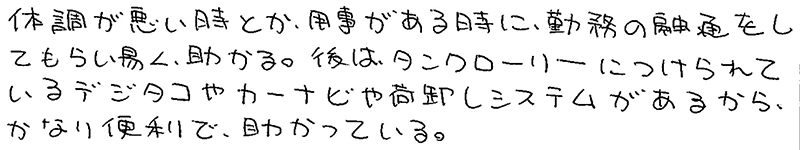 体調が悪い時とか、用事がある時に、勤務の融通をし
てもらい易く、助かる。後は、タンクローリーにつけられて
いるデジタコやカーナビや荷卸しシステムがあるから、
かなり便利で、助かっている。